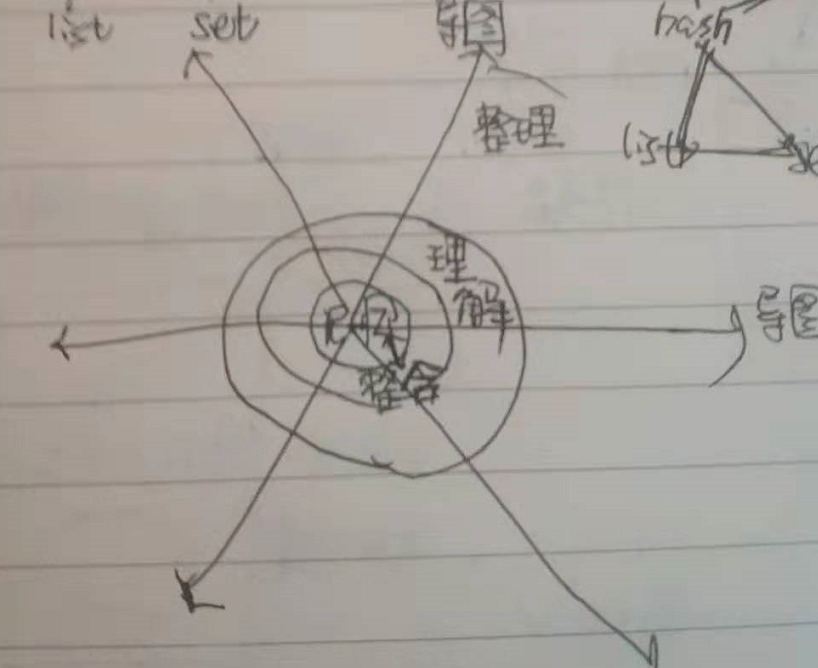 list set 导图 hash
整理
list
理
解
导图
记忆
整合